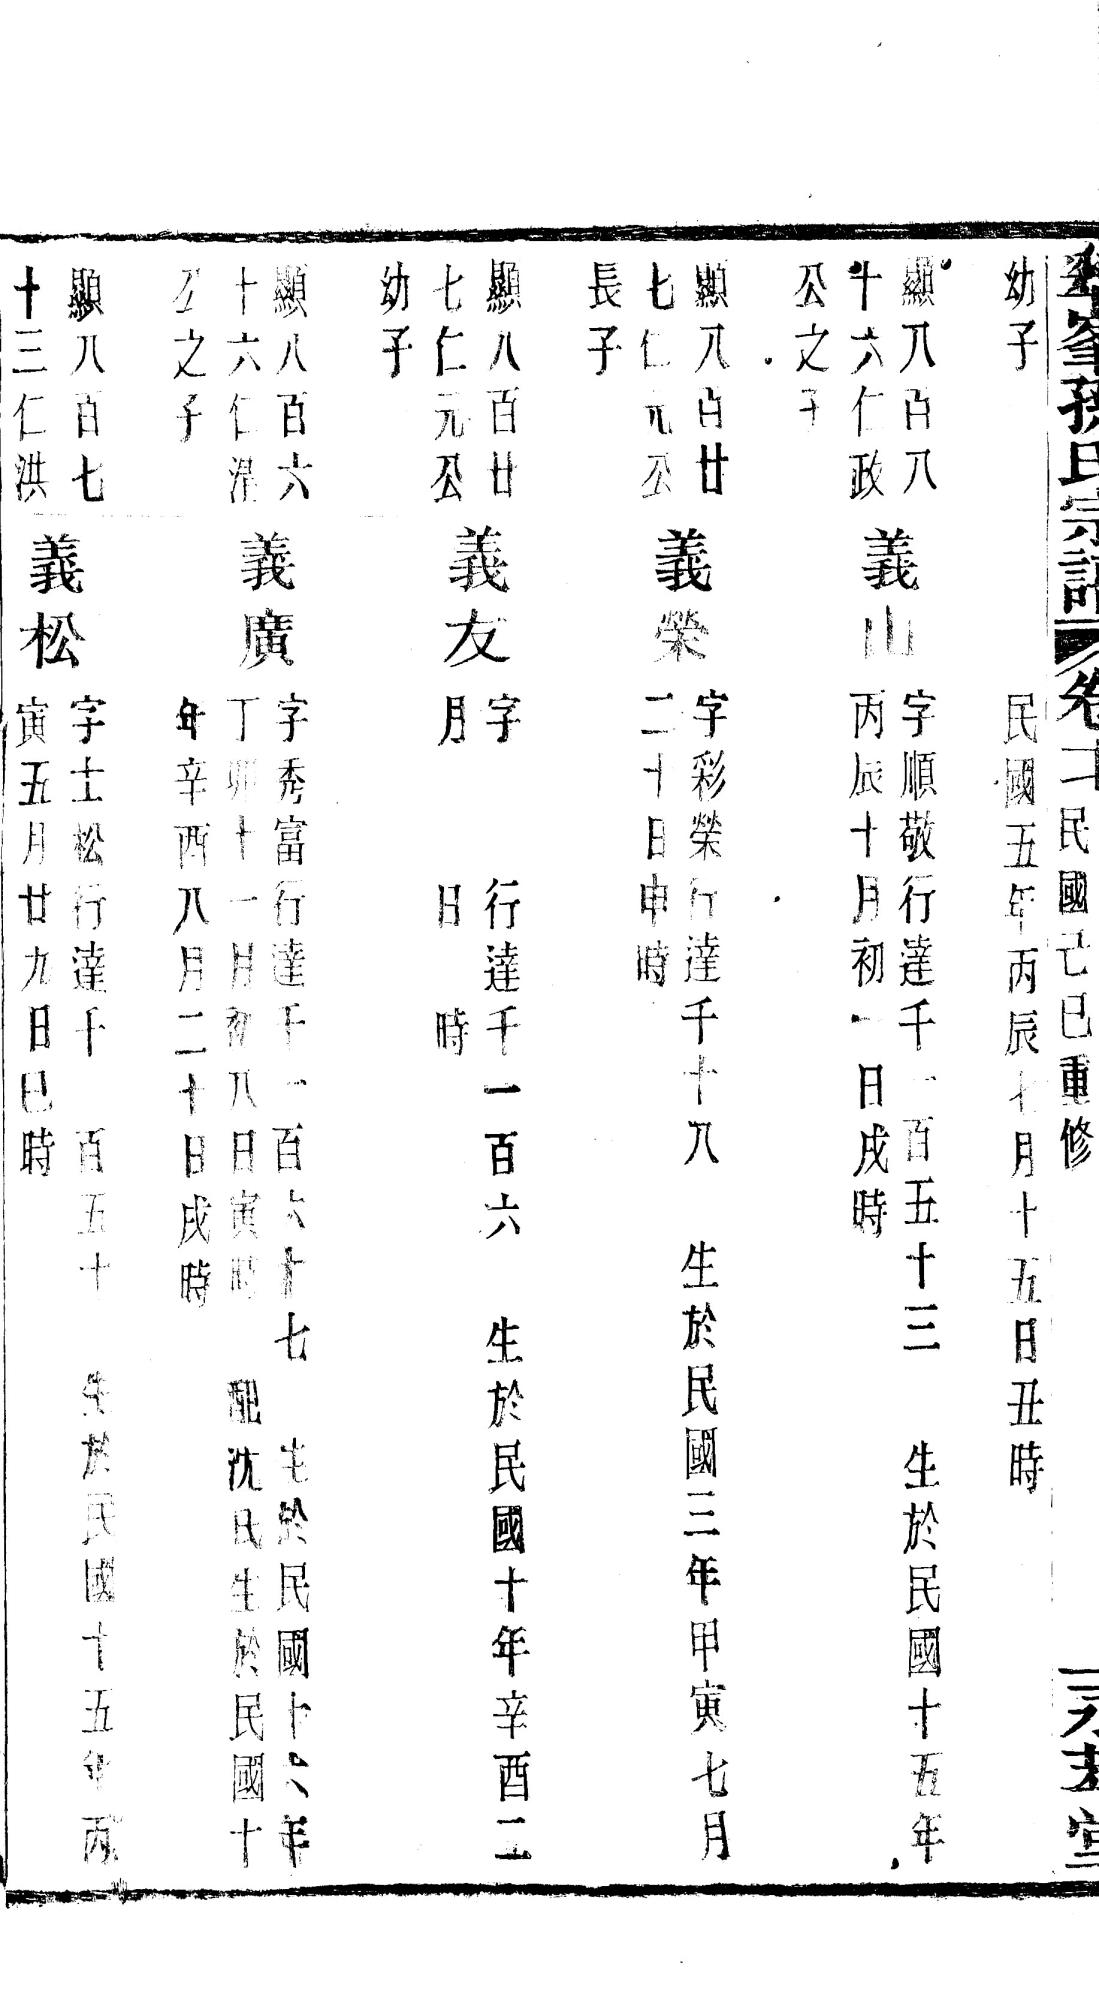 峯孫氏宗譜 卷十 民國己巳重修
幼子
民國五年丙辰七月十五日丑時
顯八百八
十六仁政
公之子
義山
字順敬行達千一百五十三 生於民國十五年
丙辰十月初一日戌時
顯八百廿
七仁元公
長子
義榮
字彩榮行達千十八 生於民國三年甲寅七月
二十日申時
顯八百廿
七仁元公
幼子
義友
字 行達千一百六 生於民國十年辛酉二
月 日 時
顯八百六
十六仁
公之子
義廣
字秀富行達千一百六十七 生於民國十六年
丁卯十一月初八日寅時 配沈氏生於民國十
年辛酉八月二十日戌時
顯八百七
十三仁洪
義松
字士松行達千 百五十 生於民國十五年丙
寅五月廿九日巳時